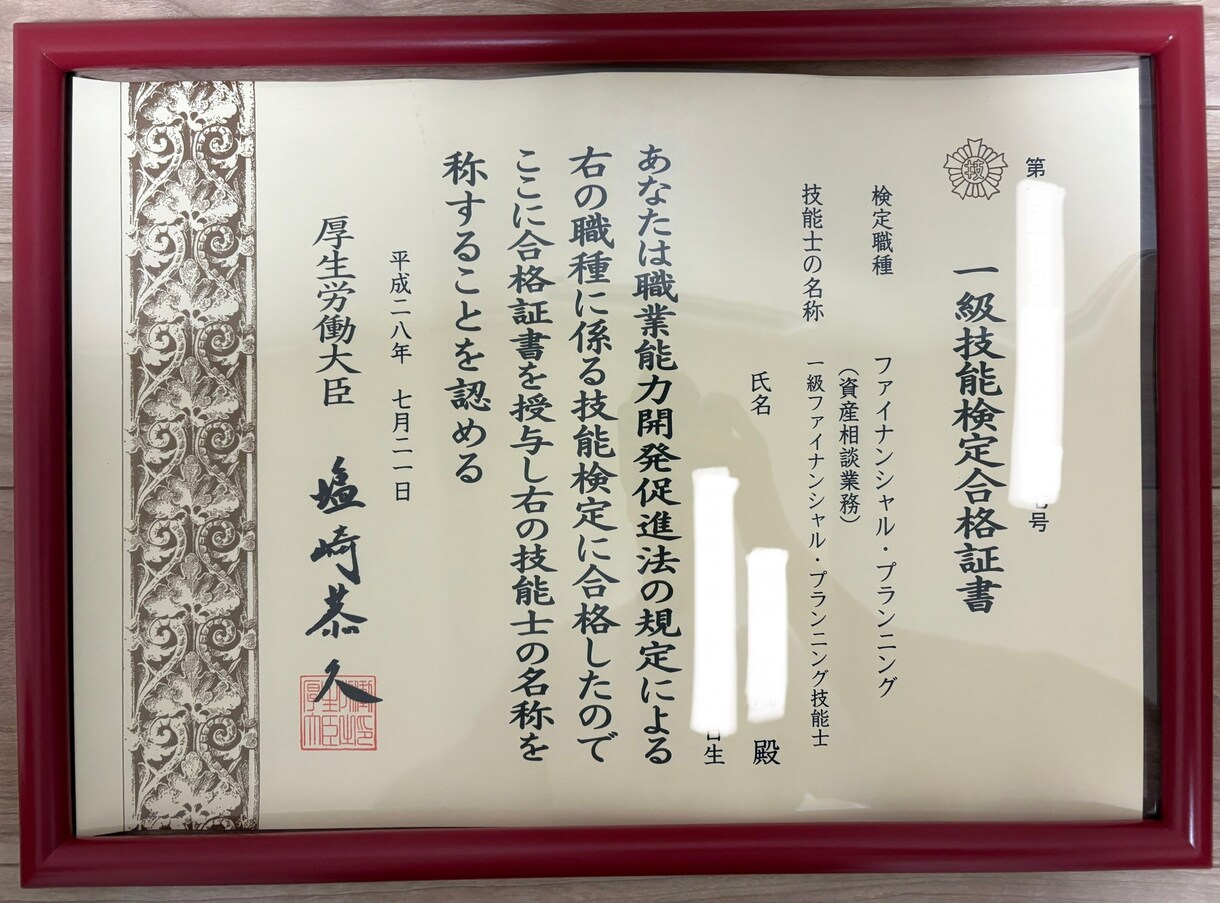 第
号
技
一級技能検定合格証書
検定職種 ファイナンシャル・プランニング
(資産相談業務)
技能士の名称 一級ファイナンシャル・プランニング技能士
氏名 殿
日生
あなたは職業能力開発促進法の規定による
右の職種に係る技能検定に合格したので
ここに合格証書を授与し右の技能士の名称を
称することを認める
平成二八年 七月二一日
厚生労働大臣 塩崎恭久